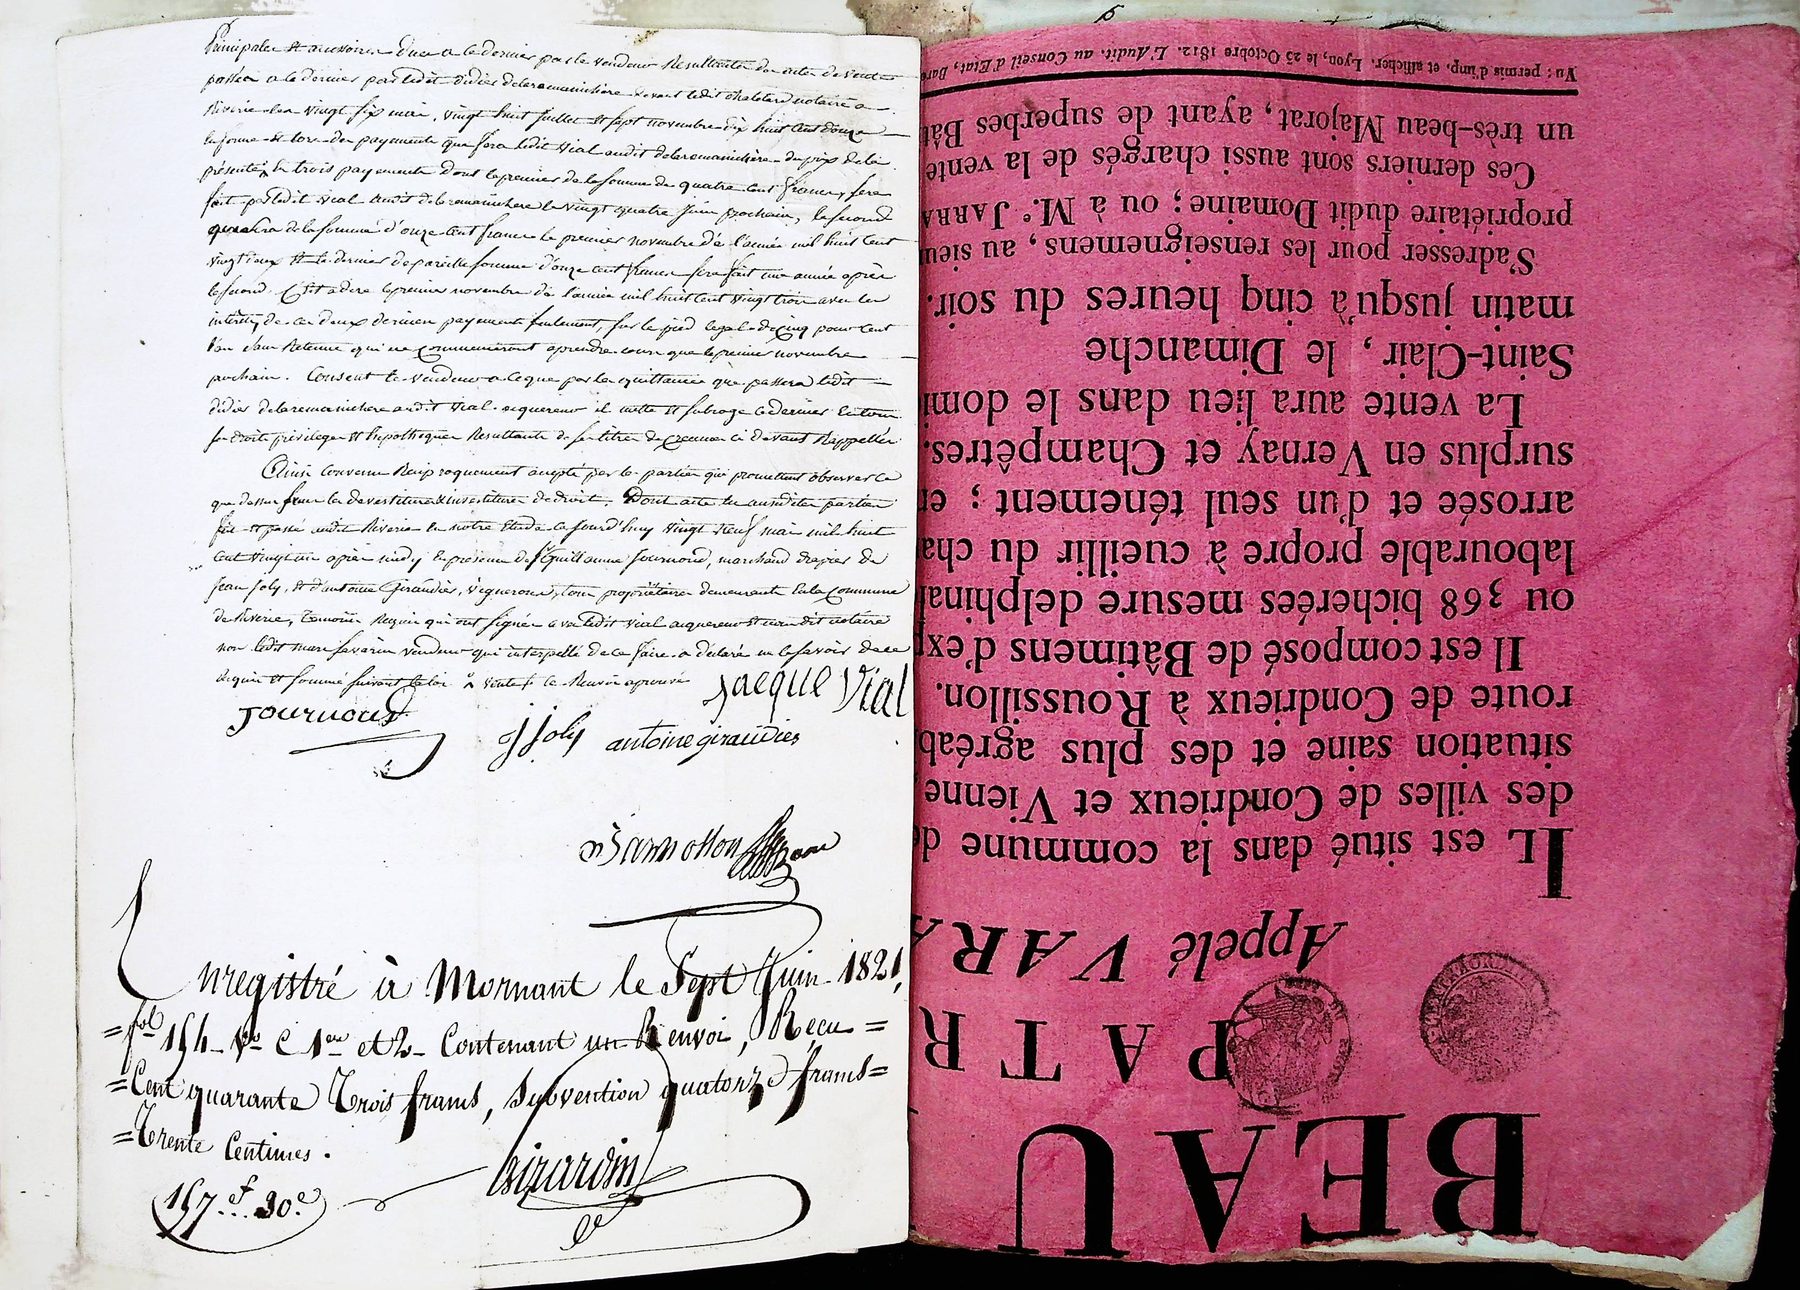 Principales et accessoires dues a ce dernier par le vendeur Resultantes des actes de vente
passés a ce dernier par ledit didier delaremanichère devant ledit chatelard notaire a
Riverie les vingt six mai, vingt huit juillet et sept novembre dix huit cent douze
la forme et lors des payements que fera ledit Vial audit delaremanichère du prix de la
présente, en trois payements dont le premier de la somme de quatre cent francs, sera
fait par ledit vial audit delaremanichere le vingt quatre juin prochain, le second
quisera de la somme d'onze cent francs le premier novembre de l'année mil huit cent
vingt deux et le dernier de pareille somme d'onze cent francs sera fait une année après
le second. C'est a dire le premier novembre de l'année mil huit cent vingt trois avec les
intérêts de ces deux derniers payements seulement, sur le pied legal de cinq pour cent
l'an sans Retenue qui ne commenceront a prendre cours que le premier novembre
prochain. Consent le vendeur a ce que par les quittances que passera ledit
didier delaremanichere audit vial acquereur il mette et subroge ce dernier en tous
ses droits privileges et hipothèques Resultants de ses titres de creances ci devant Rappellés
Ainsi convenu Reciproquement accepté par les parties qui promettent observer ce
que dessus sous les devestitures & investitures de droit. Dont acte les susdites parties
fait et passé audit Riverie en notre Etude ce jourd'huy vingt neuf mai mil huit
cent vingt un après midy en présence de Sr. Guillaume Journoud, marchand drapier de
Jean Joly, et d'antoine Giraudier, vignerons, tous propriétaires demeurants en la commune
de Riverie, temoins Requis qui ont signés avec ledit vial acquereur et nous dit notaire
non ledit mare favarin vendeur qui interpellé de ce faire a déclaré ne le savoir de ce
Requis et sommé suivant la loi vente le Renvoi aprouvé
Jacque Vial
Journoud
J Joly antoine giraudier
Enregistré à Mornant le Sept Juin 1821,
=fol 154 Vo C 1ere et 2 Contenant un Renvoi, Recu =
=Cent quarante Trois francs, Subvention quatorze francs=
=Trente Centimes.
157.f 30.c
Girardin
Vu : permis d'imp. et afficher. Lyon, le 25 Octobre 1812. L'Audit. au Conseil d'Etat, Bar
un très-beau Majorat, ayant de superbes Bât
Ces derniers sont aussi chargés de la vente
propriétaire dudit Domaine ; ou à M.e JARRA
S'adresser pour les renseignemens, au sieur
matin jusqu'à cinq heures du soir.
Saint-Clair, le Dimanche
La vente aura lieu dans le domi
surplus en Vernay et Champêtres.
arrosée et d'un seul ténement ; en
labourable propre à cueillir du cha
ou 368 bicherées mesure delphinal
Il est composé de Bâtimens d'exp
route de Condrieux à Roussillon.
situation saine et des plus agréab
des villes de Condrieux et Vienne
IL est situé dans la commune de
Appelé VARA
PATR
BEAU